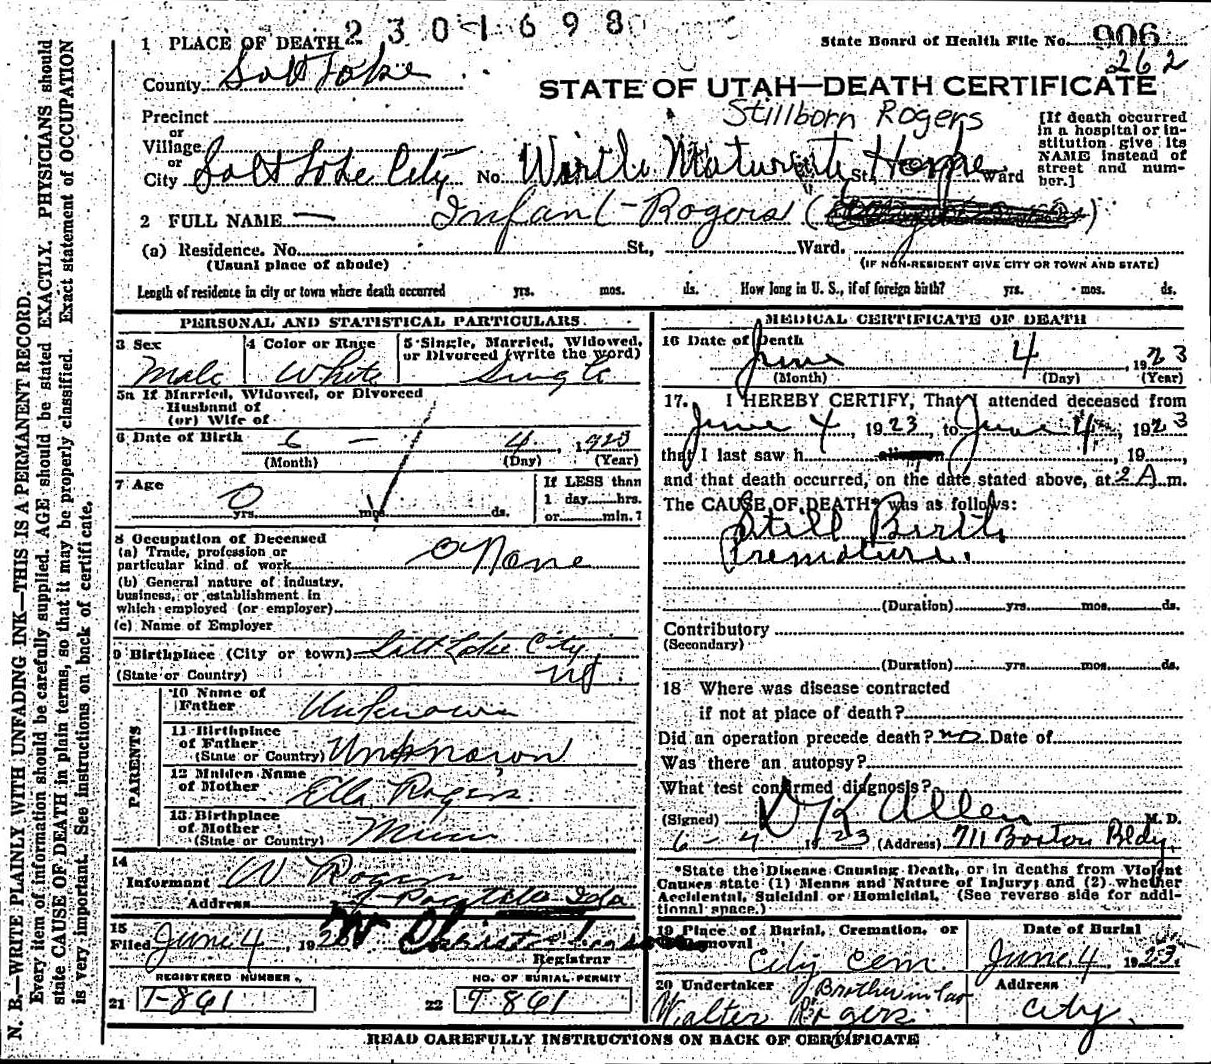 2301698
1 PLACE OF DEATH
State Board of Health File No. 906
262
County Salt Lake
STATE OF UTAH—DEATH CERTIFICATE
Stillborn Rogers
Precinct
or
Village
or
City Salt Lake City No. Maternity St., Home Ward
[If death occurred
in a hospital or in-
stitution give its
NAME instead of
street and num-
ber.]
2 FULL NAME — Infant - Rogers
(a) Residence. No. St., Ward.
(Usual place of abode) (IF NON-RESIDENT GIVE CITY OR TOWN AND STATE)
Length of residence in city or town where death occurred yrs. mos. ds. How long in U. S., if of foreign birth? yrs. mos. ds.
PERSONAL AND STATISTICAL PARTICULARS.
3 Sex 4 Color or Race 5 Single, Married, Widowed,
or Divorced (write the word)
Male White Single
5a If Married, Widowed, or Divorced
Husband of
(or) Wife of
6 Date of Birth 6 — 4, 1923
(Month) (Day) (Year)
7 Age 0
yrs. mos. ds.
If LESS than
1 day hrs.
or min.?
8 Occupation of Deceased
(a) Trade, profession or
particular kind of work None
(b) General nature of industry,
business, or establishment in
which employed (or employer)
(c) Name of Employer
9 Birthplace (City or town) Salt Lake City
(State or Country) Ut
PARENTS
10 Name of
Father Unknown
11 Birthplace
of Father
(State or Country) Unknown
12 Maiden Name
of Mother Ella Rogers
13 Birthplace
of Mother
(State or Country)
14
Informant W Rogers
Address Pocatello Ida
15
Filed June 4, 192
Registrar
REGISTERED NUMBER NO. OF BURIAL PERMIT
21 T-861 22 T 861
MEDICAL CERTIFICATE OF DEATH
16 Date of Death
June 4, 1923
(Month) (Day) (Year)
17. I HEREBY CERTIFY, That I attended deceased from
June 4, 1923, to June 4, 1923
that I last saw h , 19 ,
and that death occurred, on the date stated above, at 2 A m.
The CAUSE OF DEATH* was as follows:
Still Birth
Premature.
(Duration) yrs. mos. ds.
Contributory
(Secondary)
(Duration) yrs. mos. ds.
18 Where was disease contracted
if not at place of death?
Did an operation precede death? no Date of
Was there an autopsy?
What test confirmed diagnosis?
(Signed) D K Allen M. D.
6 - 4 1923 (Address) 711 Boston Bldg.
*State the Disease Causing Death, or in deaths from Violent
Causes state (1) Means and Nature of Injury; and (2) whether
Accidental, Suicidal or Homicidal. (See reverse side for addi-
tional space.)
19 Place of Burial, Cremation, or
Removal
Date of Burial
City Cem. June 4, 1923
20 Undertaker Brother in law
Walter Rogers
Address
City.
READ CAREFULLY INSTRUCTIONS ON BACK OF CERTIFICATE
N. B.—WRITE PLAINLY WITH UNFADING INK—THIS IS A PERMANENT RECORD.
Every item of information should be carefully supplied. AGE should be stated EXACTLY. PHYSICIANS should
state CAUSE OF DEATH in plain terms, so that it may be properly classified. Exact statement of OCCUPATION
is very important. See instructions on back of certificate.